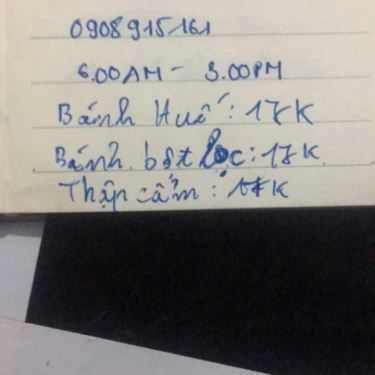 0908915161
6.00AM - 3.00PM
Bánh Huế: 17K
Bánh bột lọc: 17K
Thập cẩm: 17K